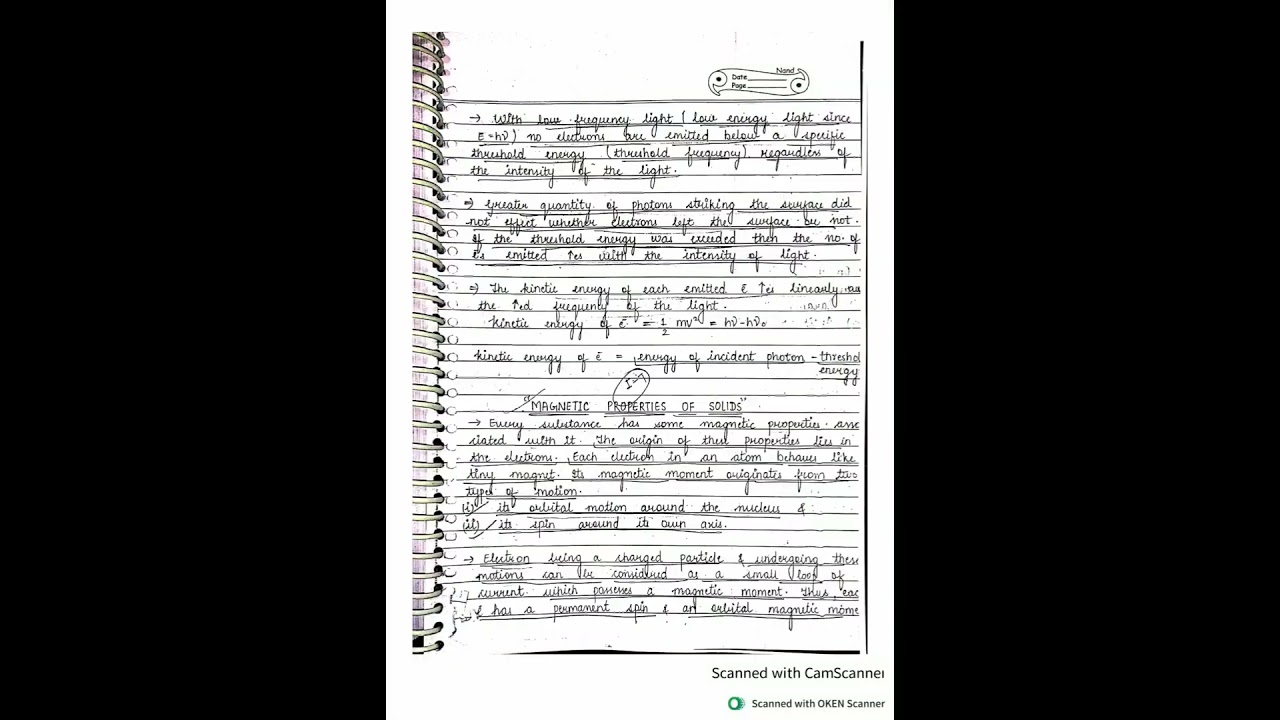 Nand
Date
Page
→ With low frequency light (low energy light since
E=hν) no electrons are emitted below a specific
threshold energy (threshold frequency) regardless of
the intensity of the light.
⇒ Greater quantity of photons striking the surface did
not effect whether electrons left the surface or not.
If the threshold energy was exceeded then the no. of
ēs emitted ↑es with the intensity of light.
⇒ The kinetic energy of each emitted ē ↑es linearly as
the ↑ed frequency of the light.
Kinetic energy of ē = 1/2 mv² = hν-hν₀
kinetic energy of ē = energy of incident photon - threshol
energy
I-7
"MAGNETIC PROPERTIES OF SOLIDS"
→ Every substance has some magnetic properties asso
ciated with it. The origin of these properties lies in
the electrons. Each electron in an atom behaves like
tiny magnet. Its magnetic moment originates from two
types of motion.
(i) its orbital motion around the nucleus &
(ii) its spin around its own axis.
→ Electron being a charged particle & undergoing these
motions can be considered as a small loop of
current which possesses a magnetic moment. Thus, eac
has a permanent spin & an orbital magnetic mome
Scanned with CamScanner
Scanned with OKEN Scanner